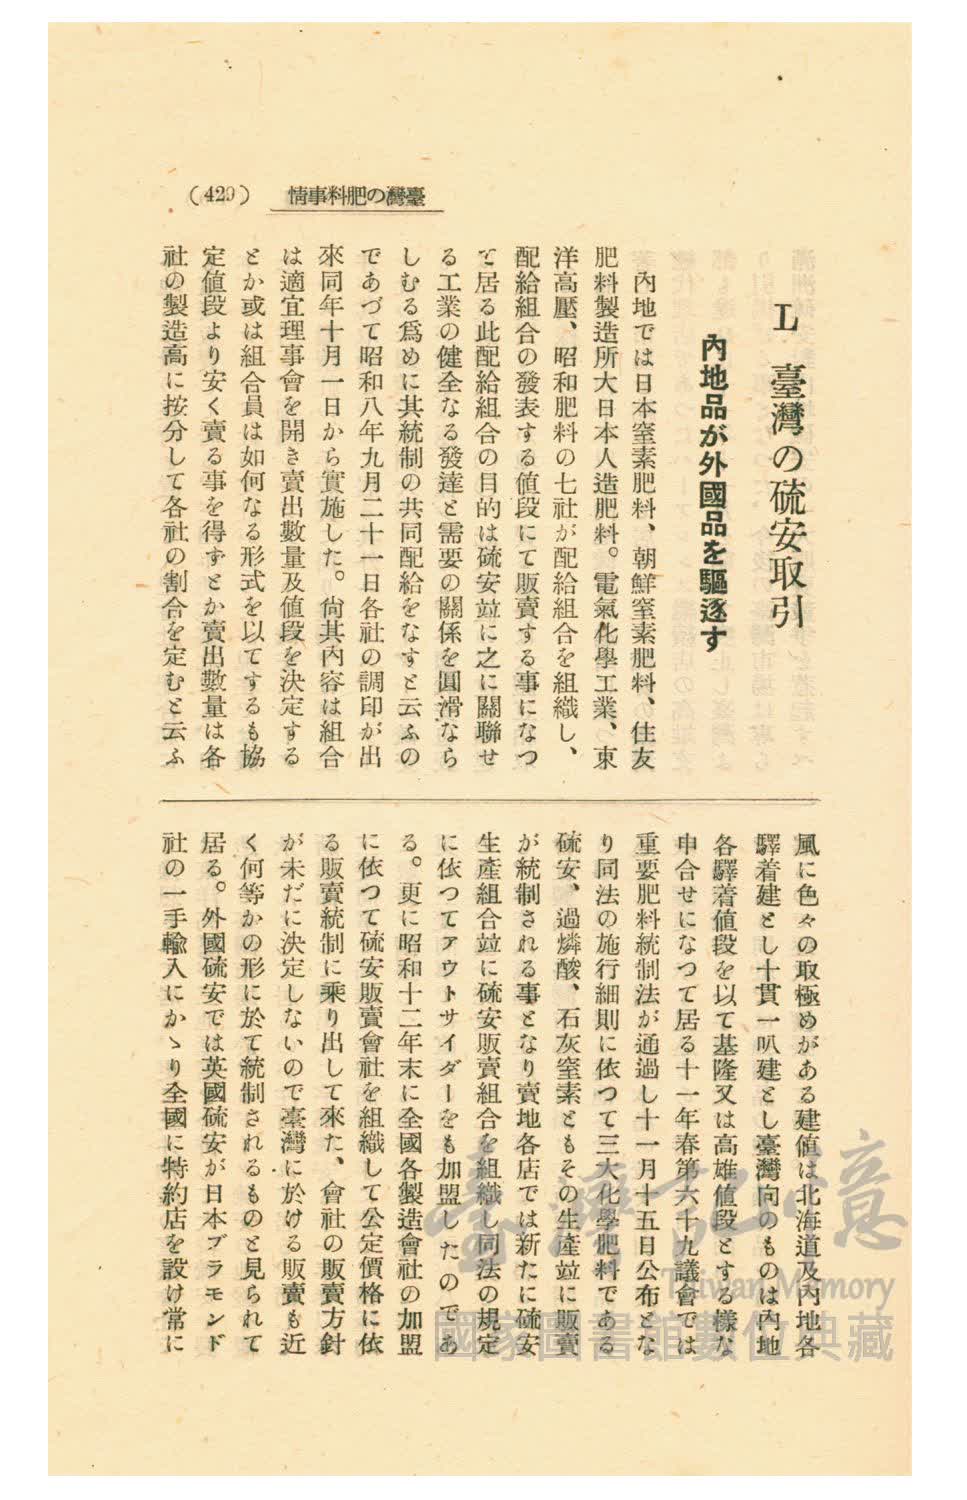 (429) 臺灣の肥料事情
L 臺灣の硫安取引
內地品が外國品を驅逐す
內地では日本窒素肥料、朝鮮窒素肥料、住友
肥料製造所大日本人造肥料。電氣化學工業、東
洋高壓、昭和肥料の七社が配給組合を組織し、
配給組合の發表する値段にて販賣する事になつ
て居る此配給組合の目的は硫安竝に之に關聯せ
る工業の健全なる發達と需要の關係を圓滑なら
しむる爲めに其統制の共同配給をなすと云ふの
であづて昭和八年九月二十一日各社の調印が出
來同年十月一日から實施した。尙其內容は組合
は適宜理事會を開き賣出數量及値段を決定する
とか或は組合員は如何なる形式を以てするも協
定値段より安く賣る事を得ずとか賣出數量は各
社の製造高に按分して各社の割合を定むと云ふ
風に色々の取極めがある建値は北海道及內地各
驛着建とし十貫一叺建とし臺灣向のものは內地
各驛着値段を以て基隆又は高雄値段とする樣な
申合せになつて居る十一年春第六十九議會では
重要肥料統制法が通過し十一月十五日公布とな
り同法の施行細則に依つて三大化學肥料である
硫安、過燐酸、石灰窒素ともその生產竝に販賣
が統制される事となり賣地各店では新たに硫安
生產組合竝に硫安販賣組合を組織し同法の規定
に依つてアウトサイダーをも加盟したのであ
る。更に昭和十二年末に全國各製造會社の加盟
に依つて硫安販賣會社を組織して公定價格に依
る販賣統制に乘り出して來た、會社の販賣方針
が未だに決定しないので臺灣に於ける販賣も近
く何等かの形に於て統制されるものと見られて
居る。外國硫安では英國硫安が日本ブラモンド
社の一手輸入にかゝり全國に特約店を設け常に
臺灣記憶
Taiwan Memory
國家圖書館數位典藏